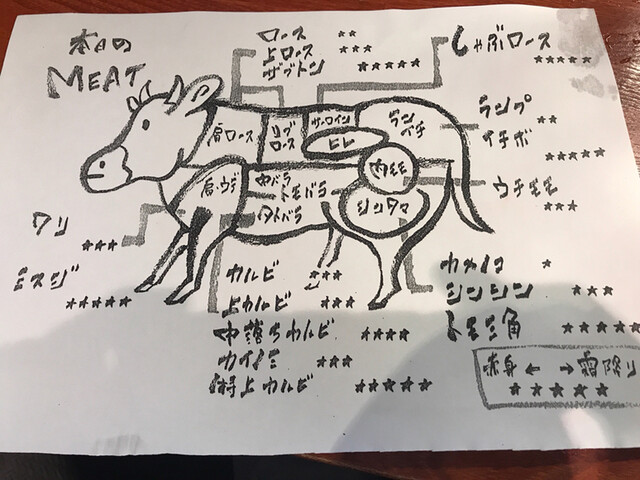 本日の
MEAT
ロース ★★
上ロース ★★★
ザブトン ★★★★★
しゃぶロース
★★★★★
肩ロース
リブロース
サーロイン
ヒレ
ランイチ
ランプ
★★
イチボ
★★★★★
内モモ
ウチモモ
★★★
肩・ウデ
中バラ
トモバラ
外バラ
シンタマ
ワリ
★★★
ミスジ
★★★★★
カルビ ★★★
上カルビ ★★★
中落ちカルビ ★★★★
カイノミ ★★★
特上カルビ ★★★★★
カメノコ ★
シンシン ★★★
トモミ角 ★★★★★
赤身 ← → 霜降り
★★★★★